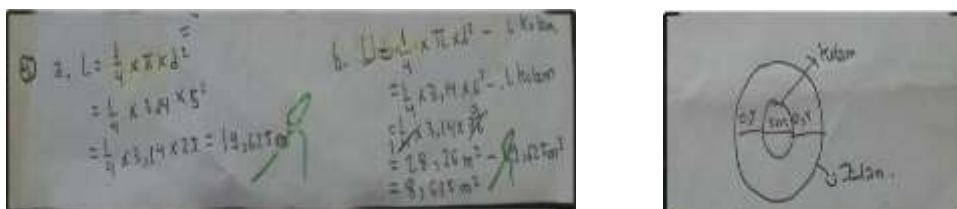 5 a. L = 1/4 x π x d²
= 1/4 x 3,14 x 5²
= 1/4 x 3,14 x 25 = 19,625 m²
b. L = 1/4 x π x d² - L kolam
= 1/4 x 3,14 x 6² - L kolam
= 1/4 x 3,14 x 36 9
= 28,26 m² - 19,625 m²
= 8,635 m²
kolam
0,5 5m 0,5
Jalan.